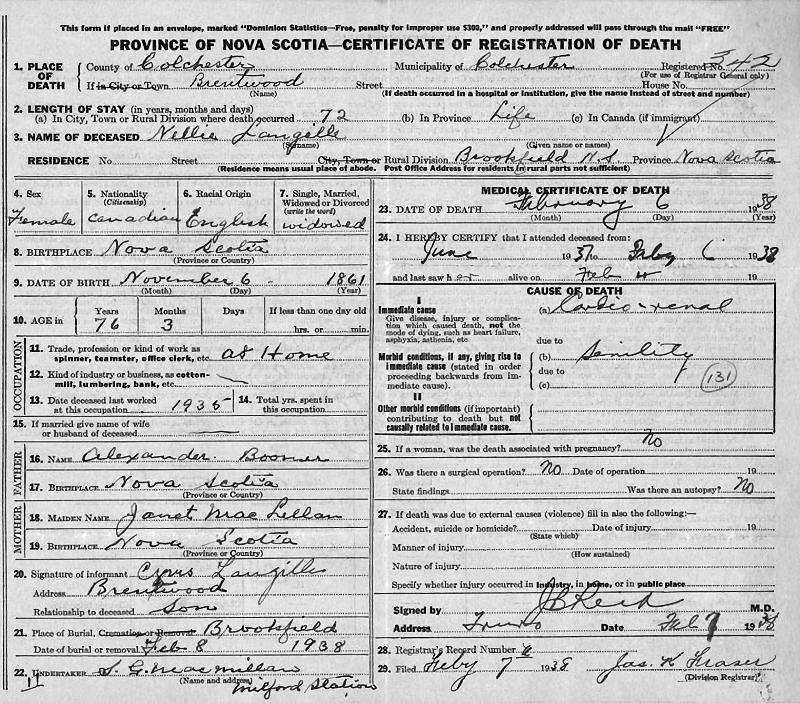 This form if placed in an envelope, marked "Dominion Statistics—Free, penalty for improper use $300," and properly addressed will pass through the mail "FREE"
PROVINCE OF NOVA SCOTIA—CERTIFICATE OF REGISTRATION OF DEATH
1. PLACE OF DEATH County of Colchester Municipality of Colchester Registered No. 342
(For use of Registrar General only)
If in City or Town Brentwood Street House No.
(Name) (If death occurred in a hospital or institution, give the name instead of street and number)
2. LENGTH OF STAY (in years, months and days)
(a) In City, Town or Rural Division where death occurred 72 (b) In Province Life (c) In Canada (if immigrant)
3. NAME OF DECEASED Nellie Langille
(Surname) (Given name or names)
RESIDENCE No. Street City, Town or Rural Division Brookfield N.S. Province Nova Scotia
(Residence means usual place of abode. Post Office Address for residents in rural parts not sufficient)
4. Sex Female
5. Nationality (Citizenship) Canadian
6. Racial Origin English
7. Single, Married, Widowed or Divorced (write the word) widowed
8. BIRTHPLACE Nova Scotia
(Province or Country)
9. DATE OF BIRTH November 6 - 1861
(Month) (Day) (Year)
10. AGE in Years Months Days If less than one day old
76 3 hrs. or min.
OCCUPATION
11. Trade, profession or kind of work as spinner, teamster, office clerk, etc. at Home
12. Kind of industry or business, as cotton-mill, lumbering, bank, etc.
13. Date deceased last worked at this occupation 1935 14. Total yrs. spent in this occupation
15. If married give name of wife or husband of deceased
FATHER
16. NAME Alexander Boomer
17. BIRTHPLACE Nova Scotia
(Province or Country)
MOTHER
18. MAIDEN NAME Janet MacLellan
19. BIRTHPLACE Nova Scotia
(Province or Country)
20. Signature of informant Cyrus Langille
Address Brentwood
Relationship to deceased Son
21. Place of Burial, Cremation or Removal Brookfield
Date of burial or removal Feb 8 1938
22. UNDERTAKER S. G. MacMillan
(Name and address) Milford Station
11
MEDICAL CERTIFICATE OF DEATH
23. DATE OF DEATH February 6 1938
(Month) (Day) (Year)
24. I HEREBY CERTIFY that I attended deceased from:
June 1937 to Feby 6 1938
and last saw her alive on Feb 19
CAUSE OF DEATH
I
Immediate cause (a) Cardio-renal
Give disease, injury or complication which caused death, not the mode of dying, such as heart failure, asphyxia, asthenia, etc.
due to
Morbid conditions, if any, giving rise to immediate cause (stated in order proceeding backwards from immediate cause).
(b) Senility
due to
(c) 131
II
Other morbid conditions (if important) contributing to death but not causally related to immediate cause.
25. If a woman, was the death associated with pregnancy? No
26. Was there a surgical operation? No Date of operation 19
State findings Was there an autopsy? No
27. If death was due to external causes (violence) fill in also the following:—
Accident, suicide or homicide? Date of injury 19
(State which)
Manner of injury
(How sustained)
Nature of injury
Specify whether injury occurred in industry, in home, or in public place
Signed by Reid M.D.
Address Truro Date Feb 7 1938
28. Registrar's Record Number
29. Filed Feby 7 1938 Jas. K. Fraser
(Division Registrar)